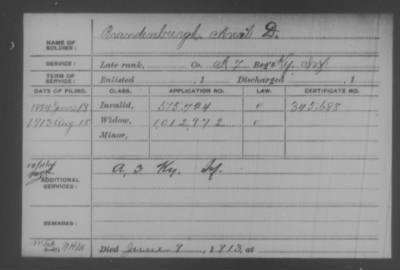 NAME OF SOLDIER: Brandenburgh, D.
SERVICE: Late rank, Co. A 7 Reg't Ky. Inf.
TERM OF SERVICE: Enlisted , 1 Discharged , 1
DATE OF FILING. CLASS. APPLICATION NO. LAW. CERTIFICATE NO.
June 18 Invalid, 575,704 345,688
1913 Aug 18 Widow, 1,012,972
Minor,
ADDITIONAL SERVICES: A, 3 Ky. Inf.
REMARKS:
Died June 9, 1913, at